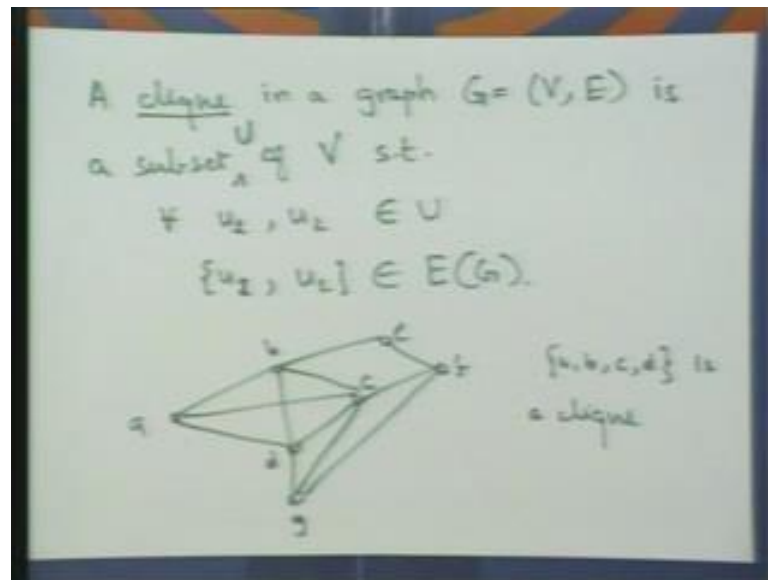 A clique in a graph G = (V, E) is
a subset U of V s.t.
∀ u₁, u₂ ∈ U
{u₁, u₂} ∈ E(G).
e
b
f
c
{a, b, c, d} is
a
a clique
d
g